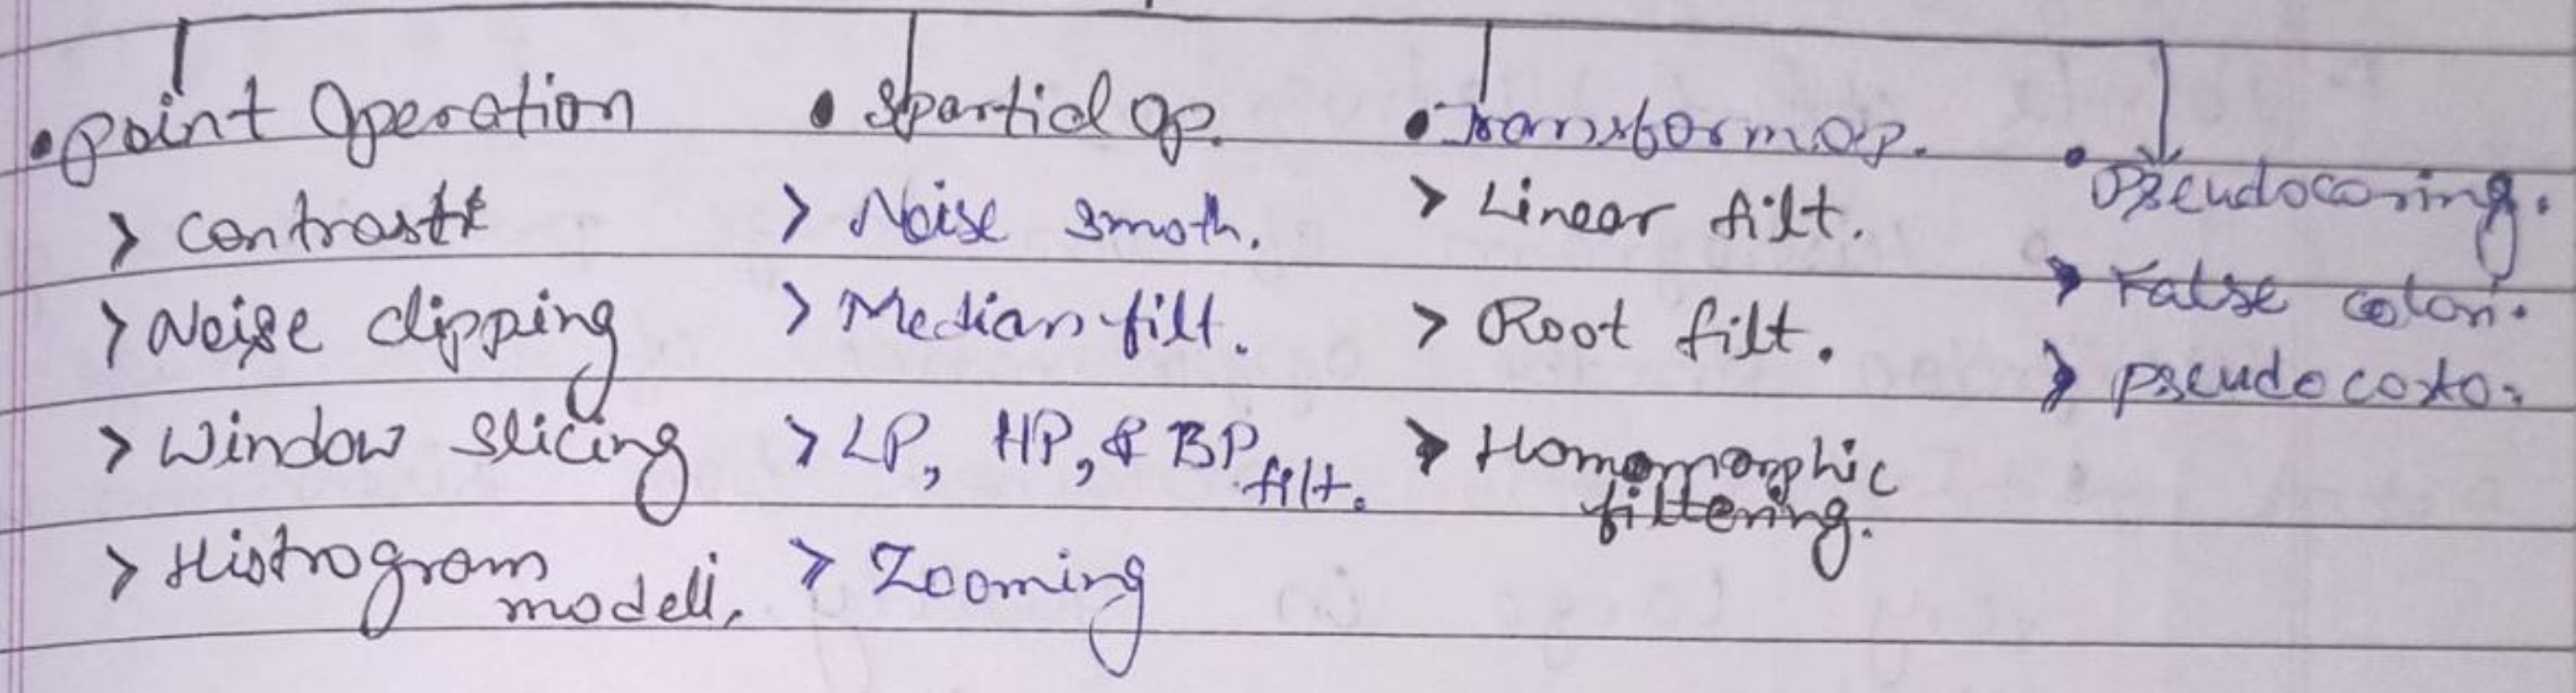 • point Operation
> contrast
> Noise clipping
> Window slicing
> Histrogram
modeli.
• Spartial op.
> Noise smoth.
> Median filt.
> LP, HP, & BP filt.
> Zooming
• Transform op.
> Linear filt.
> Root filt.
> Homomorphic
filtering.
• Pseudocoring.
> False color.
> Pseudocolo.